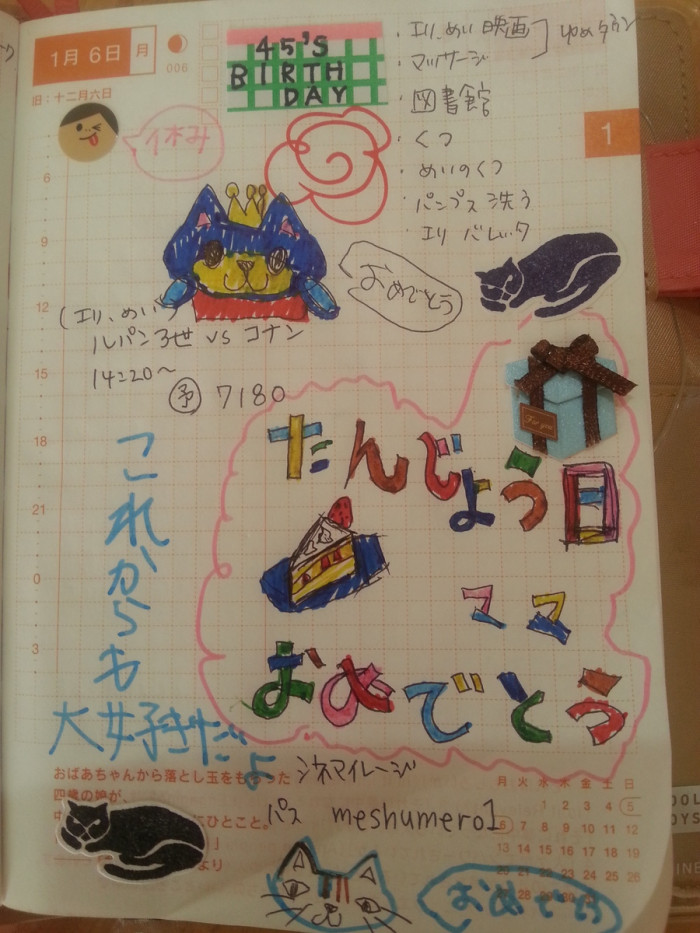 1月 6日 月
006
旧:十二月六日
45'S
BIRTH
DAY
・エリ、めい 映画
・マッサージ
ゆめタウン
・図書館
・くつ
・めいのくつ
・パンプス 洗う
・エリ バレッタ
休み
1
おめでとう
6
9
12
15
18
21
0
3
(エリ、めい
ルパン3世 VS コナン
14:20〜
予 7180
For you
たんじょう日
ママ
おめでとう
これからも
大好きだよ
おばあちゃんから落とし玉をもらった
四歳の娘が、
にひとこと。
」
より
シネマイレージ
パス meshumero1
月 火 水 木 金 土 日
1 2 3 4 5
6 7 8 9 10 11 12
13 14 15 16 17 18 19
24 25 26
28
おめでとう